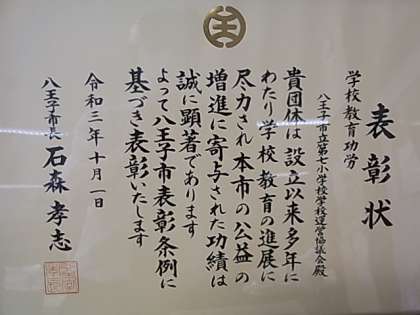 表彰状
学校教育功労
八王子市立第七小学校学校運営協議会殿
貴団体は設立以来多年に
わたり学校教育の進展に
尽力され本市の公益の
増進に寄与された功績は
誠に顕著であります
よって八王子市表彰条例に
基づき表彰いたします
令和三年十月一日
八王子市長 石森孝志